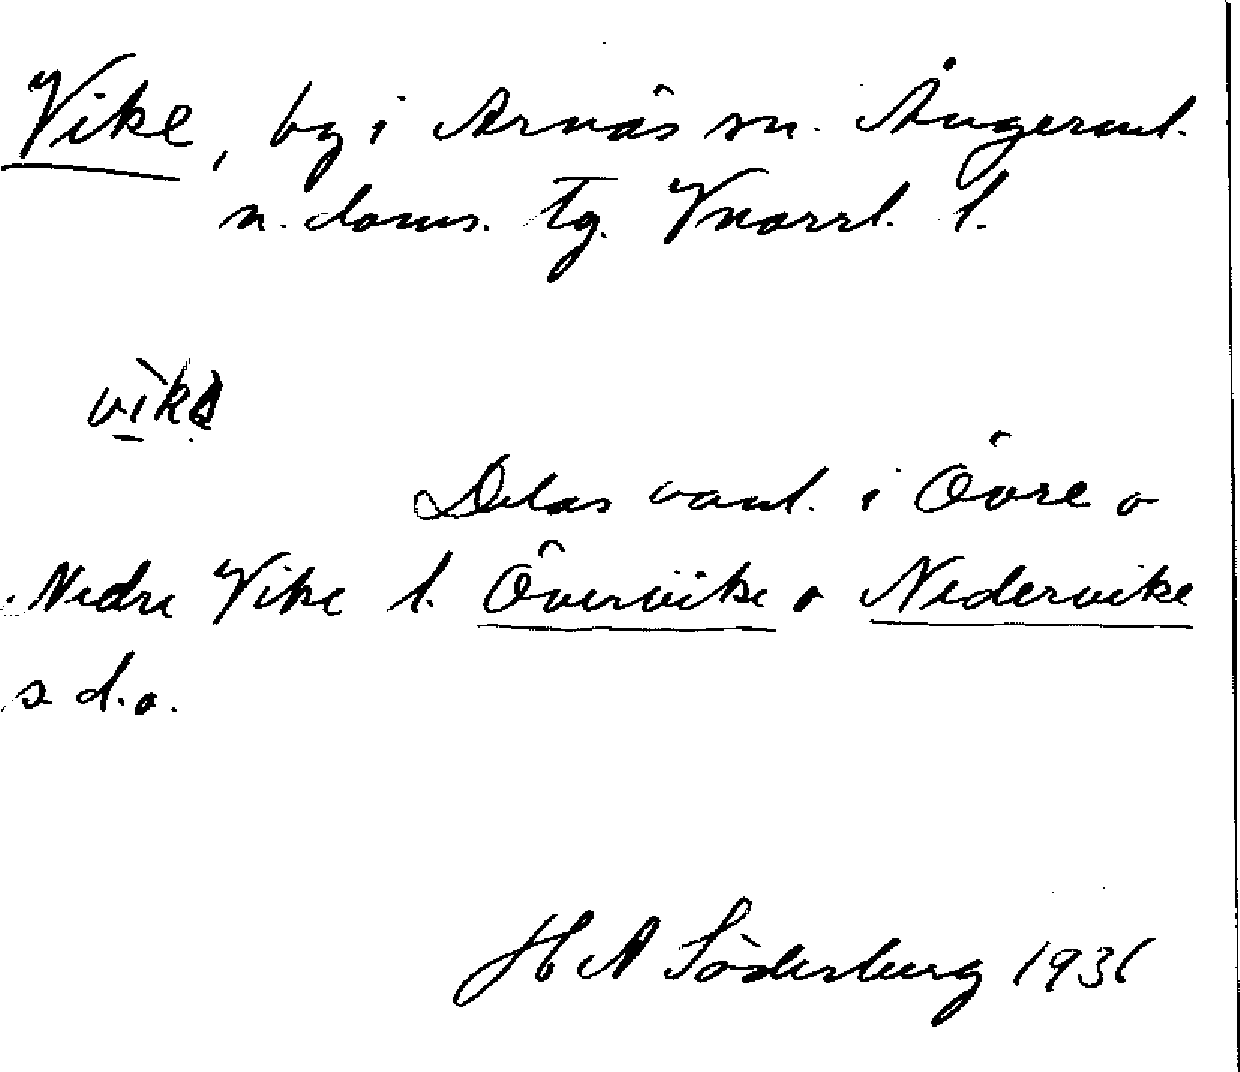 Vike, by i Arnäs sn. Ångerml.
n. doms. tg. Vnorrl. l.
Delas vanl. i Övre o
Nedre Vike l. Övervike o Nedervike
s d.o.
H A Söderberg 1931